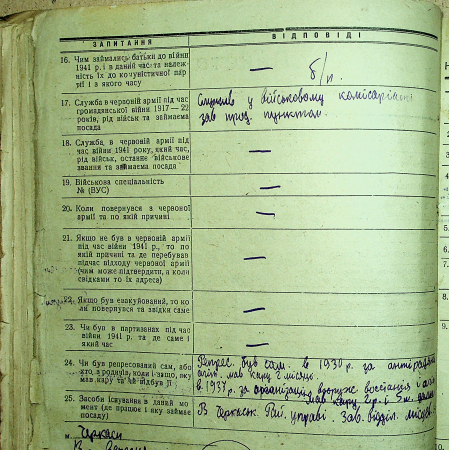 ЗАПИТАННЯ
ВІДПОВІДІ
16. Чим займались батьки до війни
1941 р. і в даний час та належ-
ність їх до комуністичної пар
тії і з якого часу
— б/п.
17. Служба в червоній армії під час
громадянської війни 1917—22
років, рід військ та займаєма
посада
Служив у військовому комісаріаті
зав прод. пунктом.
18. Служба, в червоній армії під
час війни 1941 року, який час,
рід військ, останнє військове
звання та займаєма посада
—
19. Військова спеціальність
№ (ВУС)
—
20. Коли повернувся в червоної
армії та по якій причині
—
21. Якщо не був в червоній армії
під час війни 1941 р., то по
якій причині та де перебував
підчас підходу червоної армії
(чим може підтвердити, а коли
свідками то їх адреса)
—
22. Якщо був евакуйований, то ко
ли повернувся та звідки саме
—
23. Чи був в партизанах під час
війни 1941 р. та де саме і
який час
—
24. Чи був репресований сам, або
хто з родичів, коли і защо, яку
мав кару та чи відбув її
Репрес. був в 1930 р. за
мав кару 2 місяц.
в 1937р. за організацію
мав кару 2 р. і 5 м.
25. Засоби існування в даний мо
мент (де працює і яку займає
посаду)
В Черкаськ. Рай. управі. Зав. відділ.
м. Черкаси